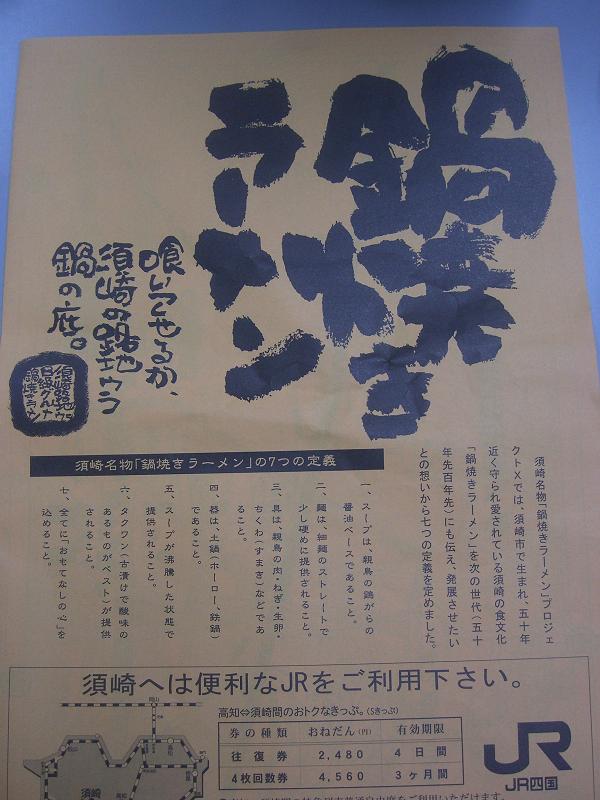 鍋焼き
ラーメン
喰いつくせるか、
須崎の路地ウラ
鍋の底。
須崎路地ウラ
日陰グルメ
鍋焼きラーメン
須崎名物「鍋焼きラーメン」プロジェ
クトXでは、須崎市で生まれ、五十年
近く守られ愛されている須崎の食文化
「鍋焼きラーメン」を次の世代(五十
年先百年先)にも伝え、発展させたい
との想いから七つの定義を定めました。
須崎名物「鍋焼きラーメン」の7つの定義
一、スープは、親鳥の鶏がらの
醤油ベースであること。
二、麺は、細麺のストレートで
少し硬めに提供されること。
三、具は、親鳥の肉・ねぎ・生卵・
ちくわ(すまき)などであ
ること。
四、器は、土鍋(ホーロー、鉄鍋)
であること。
五、スープが沸騰した状態で
提供されること。
六、タクワン(古漬けで酸味の
あるものがベスト)が提供
されること。
七、全てに「おもてなしの心」を
込めること。
須崎へは便利なJRをご利用下さい。
高知⇔須崎間のおトクなきっぷ。(Sきっぷ)
券の種類 おねだん(円) 有効期限
往復券 2,480 4日間
4枚回数券 4,560 3ヶ月間
JR
JR四国
岡山
高松
須崎
高知